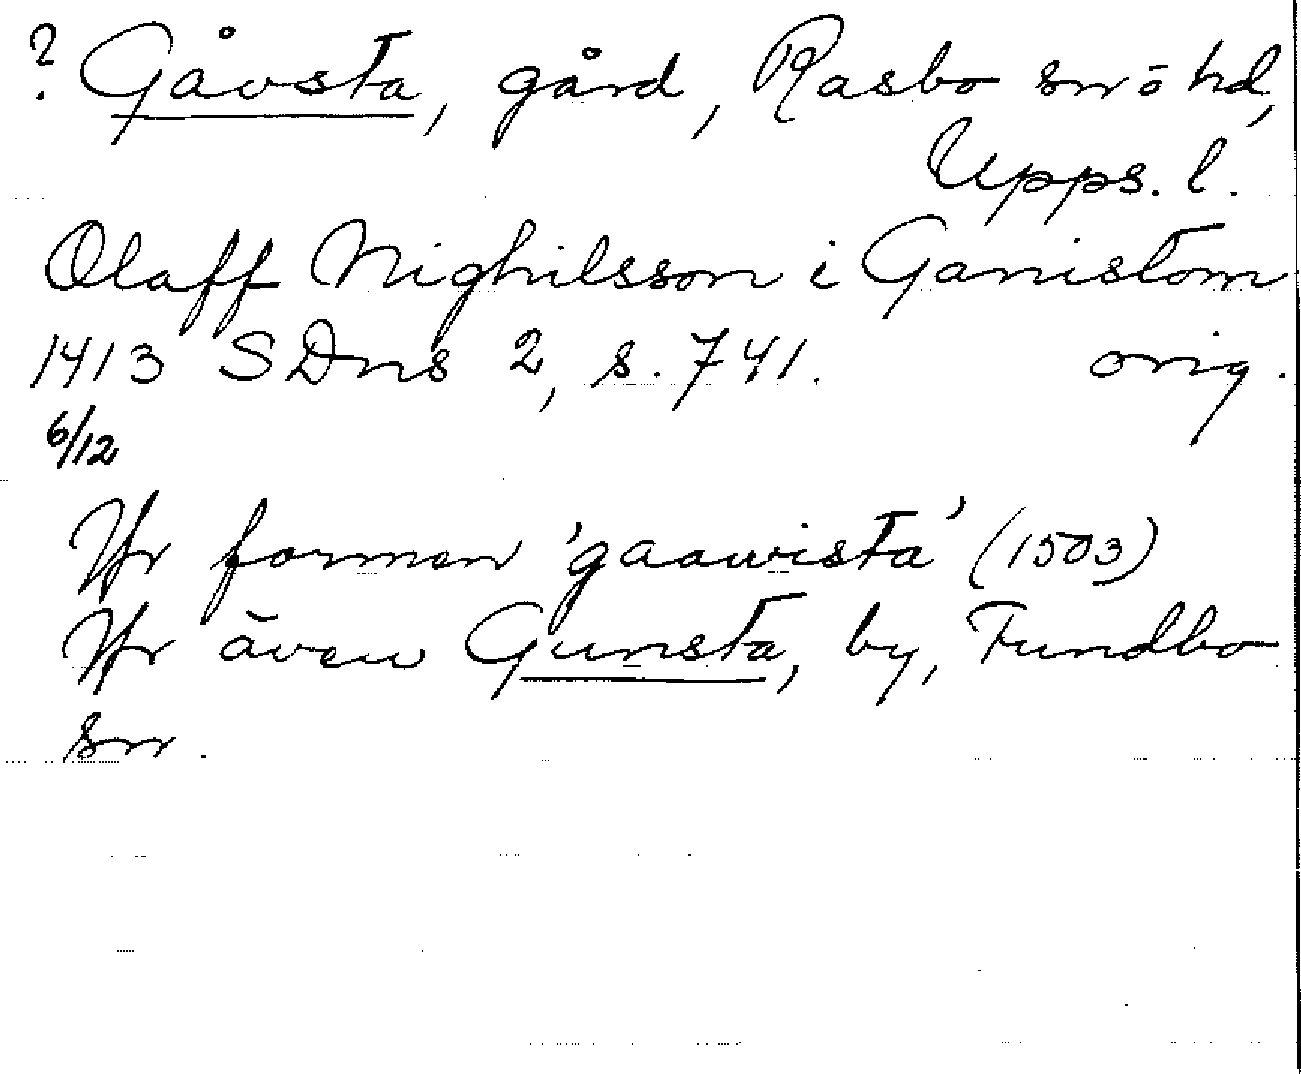 ? Gåvsta, gård, Rasbo sn o hd,
Upps. l.
Olaff Nighilsson i Ganistom
1413 SDns 2, s. 741. orig.
6/12
Jfr formen 'gaawista' (1503)
Jfr även Gunsta, by, Funbo
sn.